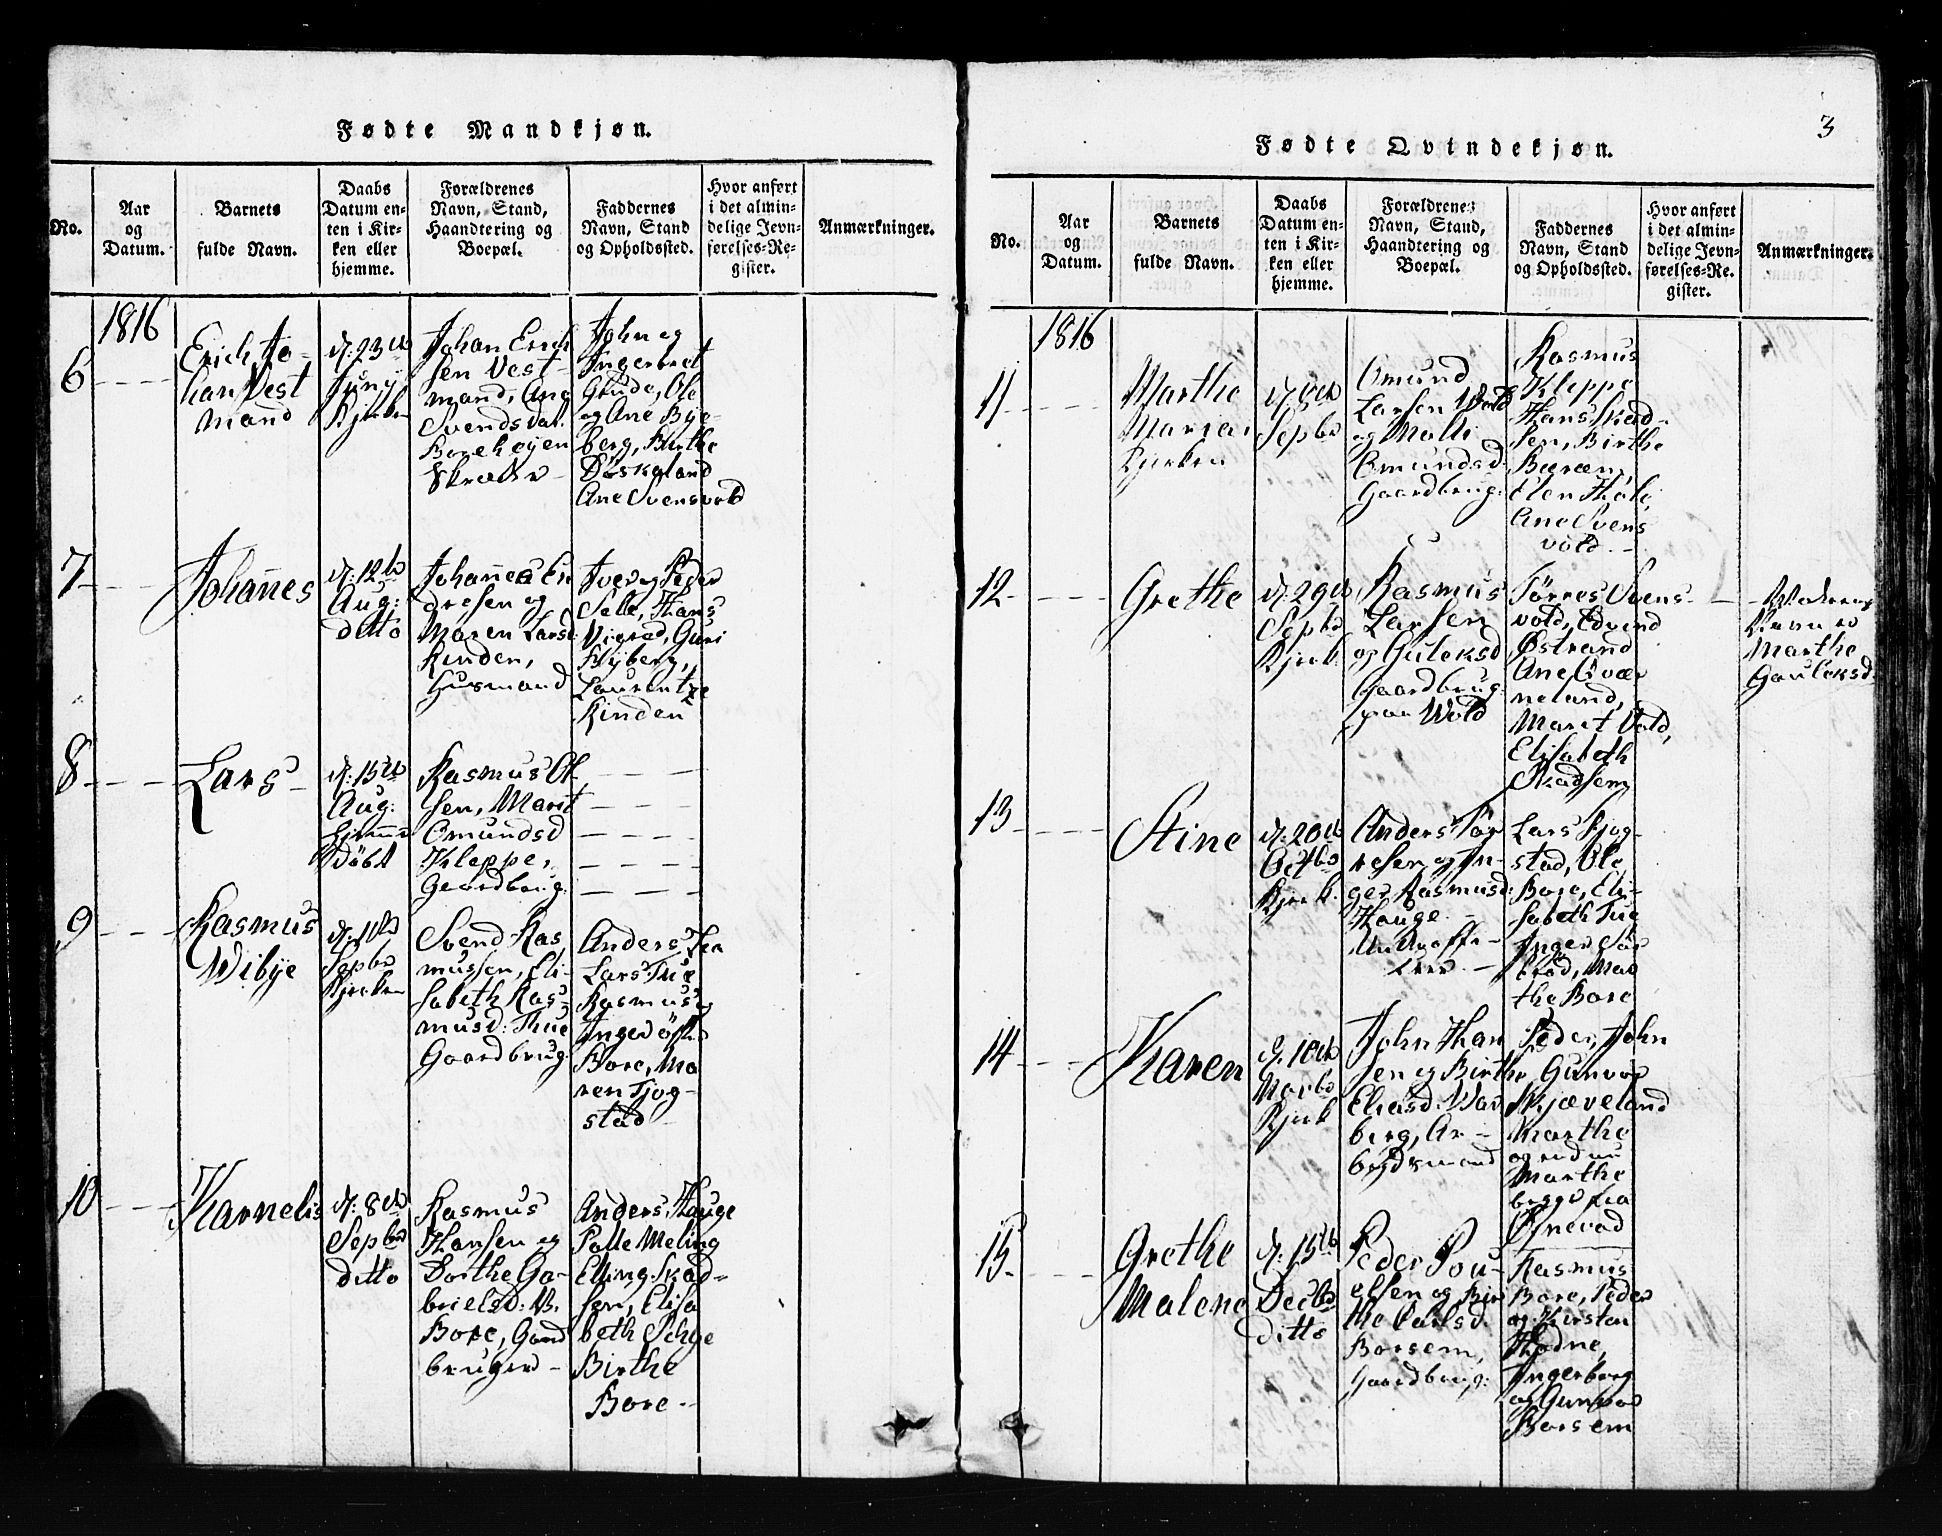 Fødte Mandkjøn.
No.
Aar
og
Datum.
Barnets
fulde Navn.
Daabs
Datum en-
ten i Kir-
ken eller
hjemme.
Forældrenes
Navn, Stand,
Haandtering og
Boepæl.
Faddernes
Navn, Stand
og Opholdssted.
Hvor anført
i det almin-
delige Jevn-
førelses-Re-
gister.
Anmærkninger.
1816
6
Erich Jo-
han Vest
mand
d: 23de
Juny
Kjerken
Johan Erich
sen Vest-
mand, Ane
Svendsdat.
Borehøyen
John og
Ingeboret
Grude, Ole
og Ane Bye-
berg, Birthe
Ane Svensvold
7
Johañes
d: 12te
Aug:
ditto
Johañes En
dresen og
Maren Larsd
Rinden,
Husmand
Iver og Peder
Sele, Hans
Vigred, Guri
Nyberg,
Laurentze
Rinden
8
Lars
d: 15de
Aug:
Hjemme
døbt
Rasmus Ol-
sen, Marit
Omundsd
Kleppe,
Gaardbrug:
9
Rasmus
Wibye
d: 1ste
Sepbr
Kjerken
Svend Ras
mussen, Eli-
sabeth Ras-
musd: Thue
Gaardbrug:
Anders Fra
Lars Tue
Rasmus og
Inger østre
Bore, Ma
ren Tjog-
stad
10
Karnelis
d: 8de
Sepbr
ditto
Rasmus
Hansen og
Dorthe Ga-
brielsd: N.
Bore, Gaard
bruger
Anders Hauge
Palle Meling
Elling Skad-
sem, Elisa
beth Schye
Birthe
Bore
Fødte Qvindekjøn.
3
No.
Aar
og
Datum.
Barnets
fulde Navn.
Daabs
Datum en-
ten i Kir-
ken eller
hjemme.
Forældrenes
Navn, Stand,
Haandtering og
Boepæl.
Faddernes
Navn, Stand
og Opholdssted.
Hvor anført
i det almin-
delige Jevn-
førelses-Re-
gister.
Anmærkninger.
1816
11
Marthe
Maria
Kjerken
d: 8de
Sepbr
Omund
Larsen Vold
og Malli
Omundsd
Gaardbrug:
Rasmus
Kleppe
Hans Skad-
sen, Birthe
Elen Hole
Ane Svens
vold
12
Grethe
d: 29de
Sepbr
Kjerk
Rasmus
Larsen
og Guleksd
Gaardbrug:
paa Wold
Tørres Svens-
vold, Edvend
Østrand
Ane Qvær
neland,
Marit Vold,
Elisabeth
Skadsem
Navn er
Marthe
Gauleksd
13
Stine
d: 20de
Octbr
Kjerk.
Anders Tør
resen og In-
ger Rasmusd:
Hauge
Lars Tjog-
stad, Ole
Bore, Eli-
sabeth Tue
Inger Sør
Mar
the Bore
14
Karen
d: 10de
Novbr
Kjerk
John Han
sen og Birthe
Eliasd: War
berg, Ar-
beydsmand
Peder, John
Gunvor
Skjæveland
Marthe
og endnu
Marthe
begge fra
Øxnevad
15
Grethe
Malene
d: 15de
Decbr
ditto
Peder Pou-
elsen og Bir
the Carlsd.
Borsem,
Gaardbrug:
Rasmus
Bore, Peder
og Kirsten
Hodne,
Ingerborg
og Gunvor
Borsem